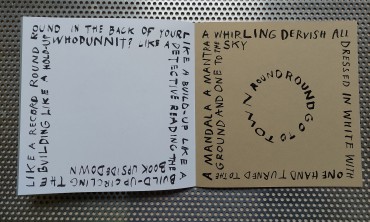 LIKE A RECORD ROUND ROUND
ROUND IN THE BACK OF YOUR
LIKE A BUILD-UP LIKE A
BUILD-UP CIRCLING THE
BUILDING LIKE A HOLD-UP
WHODUNNIT? LIKE A
DETECTIVE READING THE
BOOK UPSIDEDOWN
A MANDALA A MANTRA
A WHIRLING DERVISH ALL
DRESSED IN WHITE WITH
ONE HAND TURNED TO THE
GROUND AND ONE TO THE
SKY
AROUND ROUND GO TO TOWN